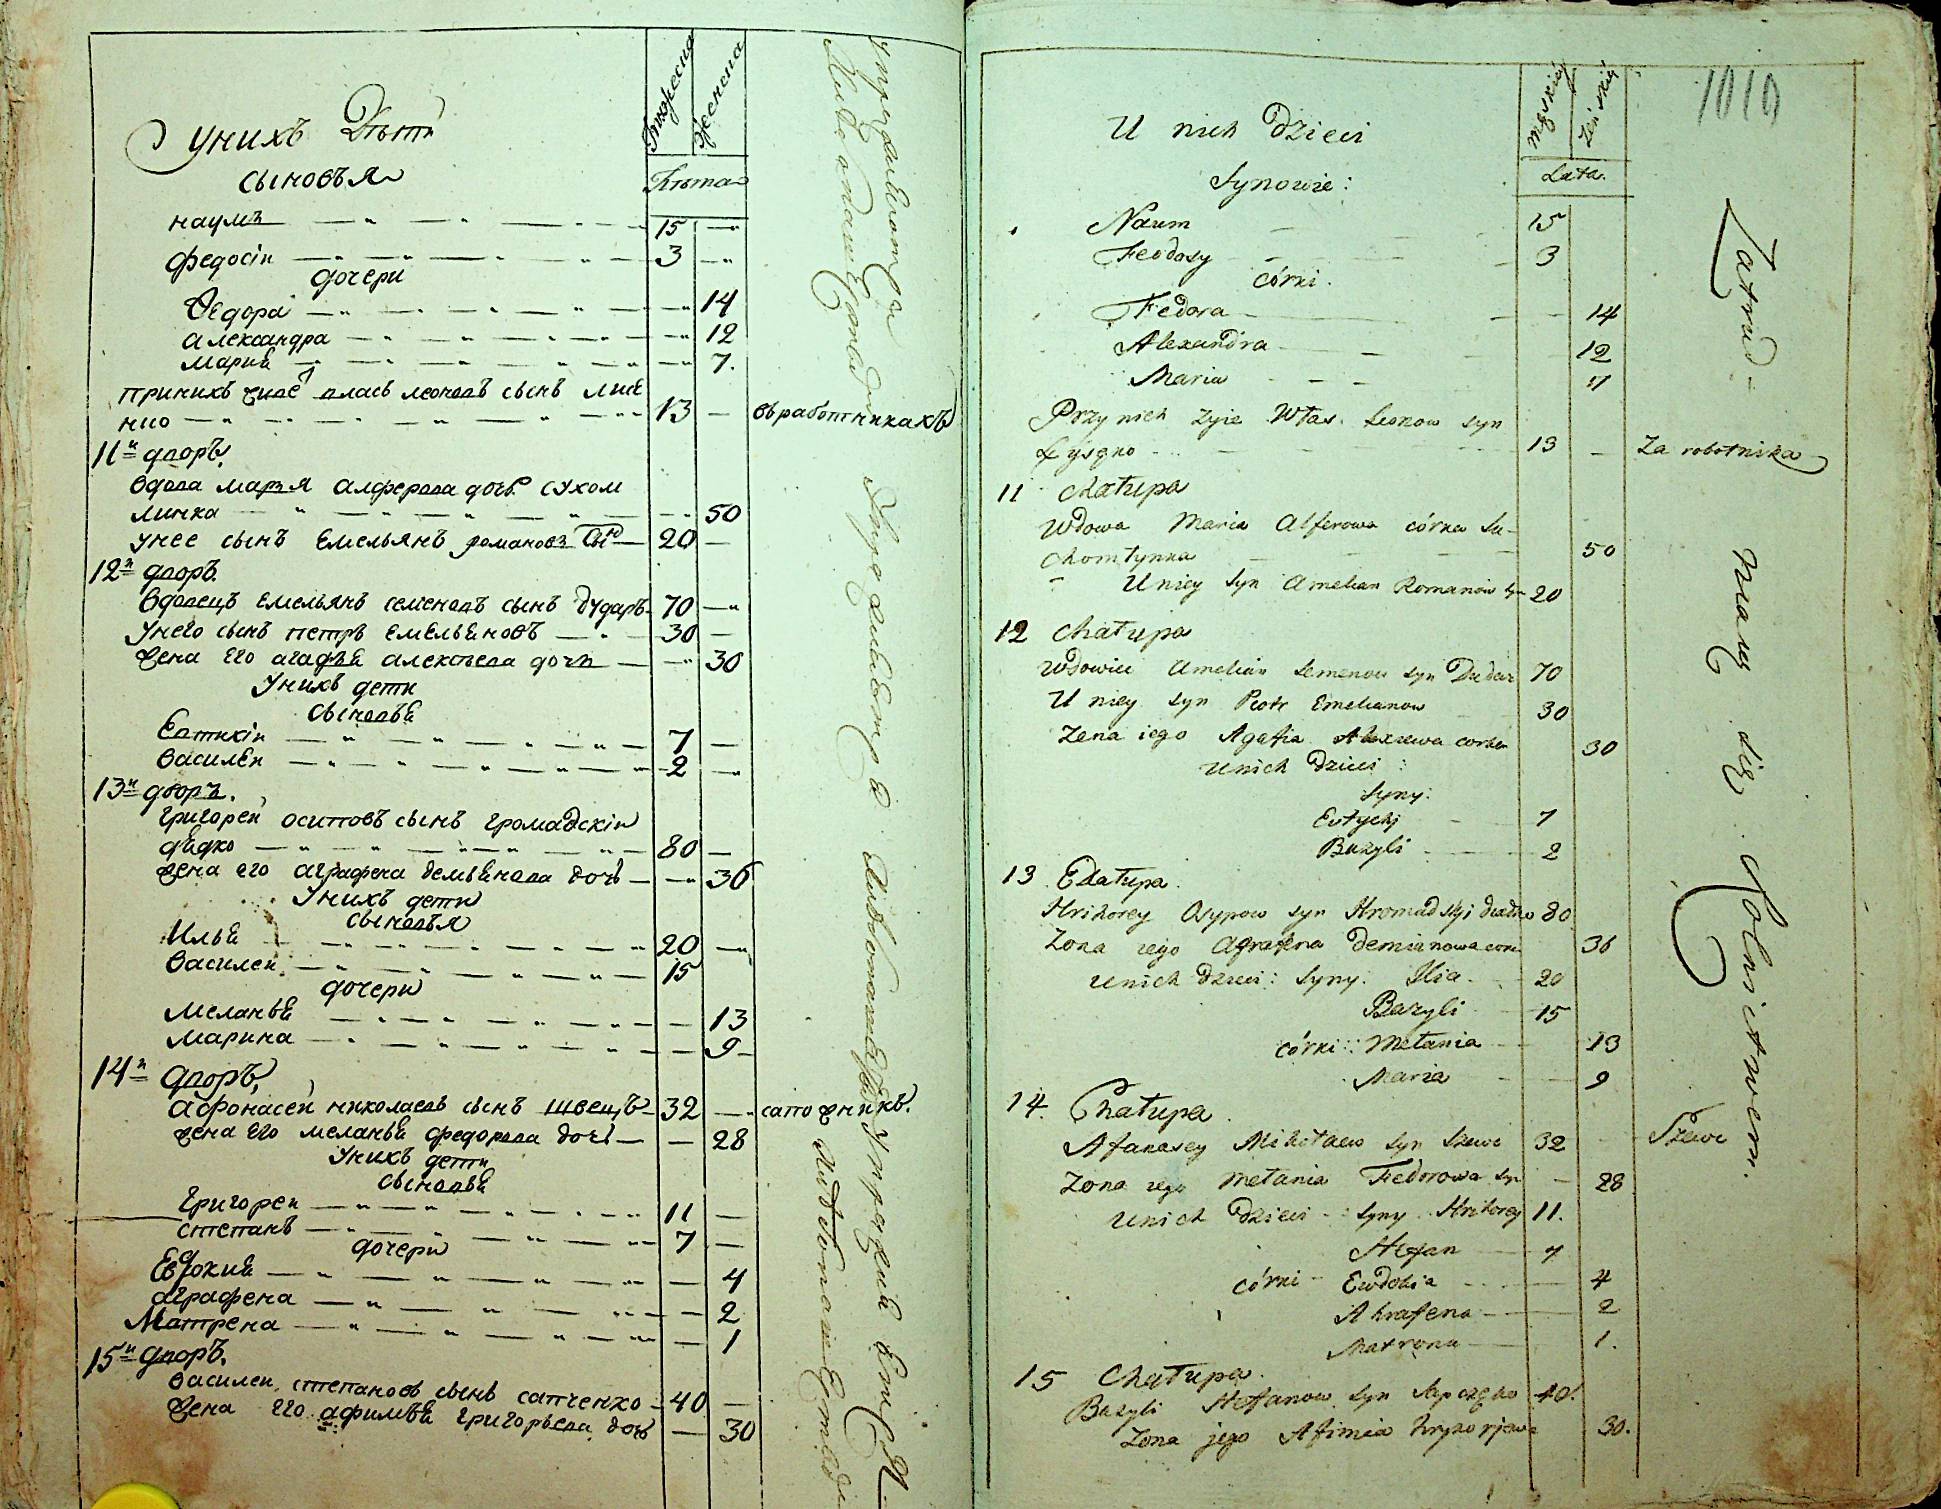 У нихъ Дѣти
Мужеска
Женска
сыновья
Лѣта
наумъ 15 —
федосіи 3 —
дочери
Ѳедора — 14
александра — 12
Мария — 7.
при нихъ живе влась леоновъ сынъ лиш
нио 13 — въ работникахъ
11й дворъ.
вдова марья алферова дочь сухом
линка — 50
у нее сынъ Емельянъ романовъ сынъ 20 —
12й дворъ.
вдовецъ емельянъ семеновъ сынъ дударь 70 —
у него сынъ петръ емельяновъ 30 —
жена его агафья алексеева дочь — 30
У нихъ дети
сыновья
Евтихіи 7 —
василеи 2 —
13й дворъ.
григореи осиповъ сынъ громадскіи
дядко 80 —
жена его аграфена демьянова дочь — 36
У нихъ дети
сыновья
Илья 20 —
василеи 15
дочери
Меланья — 13
Марина — 9
14й дворъ,
афонасеи николаевъ сынъ швецъ 32 — сапожникъ.
жена его меланья федорова дочь — 28
У нихъ дети
сыновья
григореи 11 —
степанъ 7 —
дочери
Евдокия — 4
аграфена — 2
Матрена — 1
15й дворъ.
василеи степановъ сынъ сапченко 40 —
жена его афимья григорьева дочь — 30
1010
U nich Dzieci
Męzskiej
Żeńskiej
Synowie:
Lata.
Naum 15
Feodosy 3
Córki.
Fedora 14
Alexandra 12
Maria 7
Przy nich zyie Włas Leonow syn
Łysgno 13 — Za robotnika
11 Chałupa
Wdowa Maria Alferowa córka Su-
chomłynna 50
U niey syn Amelian Romanow syn 20
12 Chałupa
Wdowiec Amelian Semenow syn Dudar 70
U niey syn Piotr Emelianow 30
Zena iego Agafia Alexiewa corka 30
U nich Dzieci:
Syny:
Eutychj 7
Bazyli 2
13. Chałupa.
Hrihorey Osypow syn Hromadskj diadko 80
Zona iego Agrafena Demianowa cor. 36
U nich Dzieci: Syny: Ilia 20
Bazyli 15
Córki: Mełania 13
Maria 9
14. Chałupa.
Afanasey Mikołaew syn Szewc 32 — Szewc
Zona iego Mełania Fedorowa syn — 28
U nich Dzieci Syny Hrihorey 11.
Stefan 7
Córki Ewdokia 4
Ahrafena 2
Matrona 1.
15 Chałupa.
Bazyli Stefanow syn Sapczenko 40.
Zona jego Afimia Hryhorjewa 30.
Zatrud-
niaią się Rolnictwem.